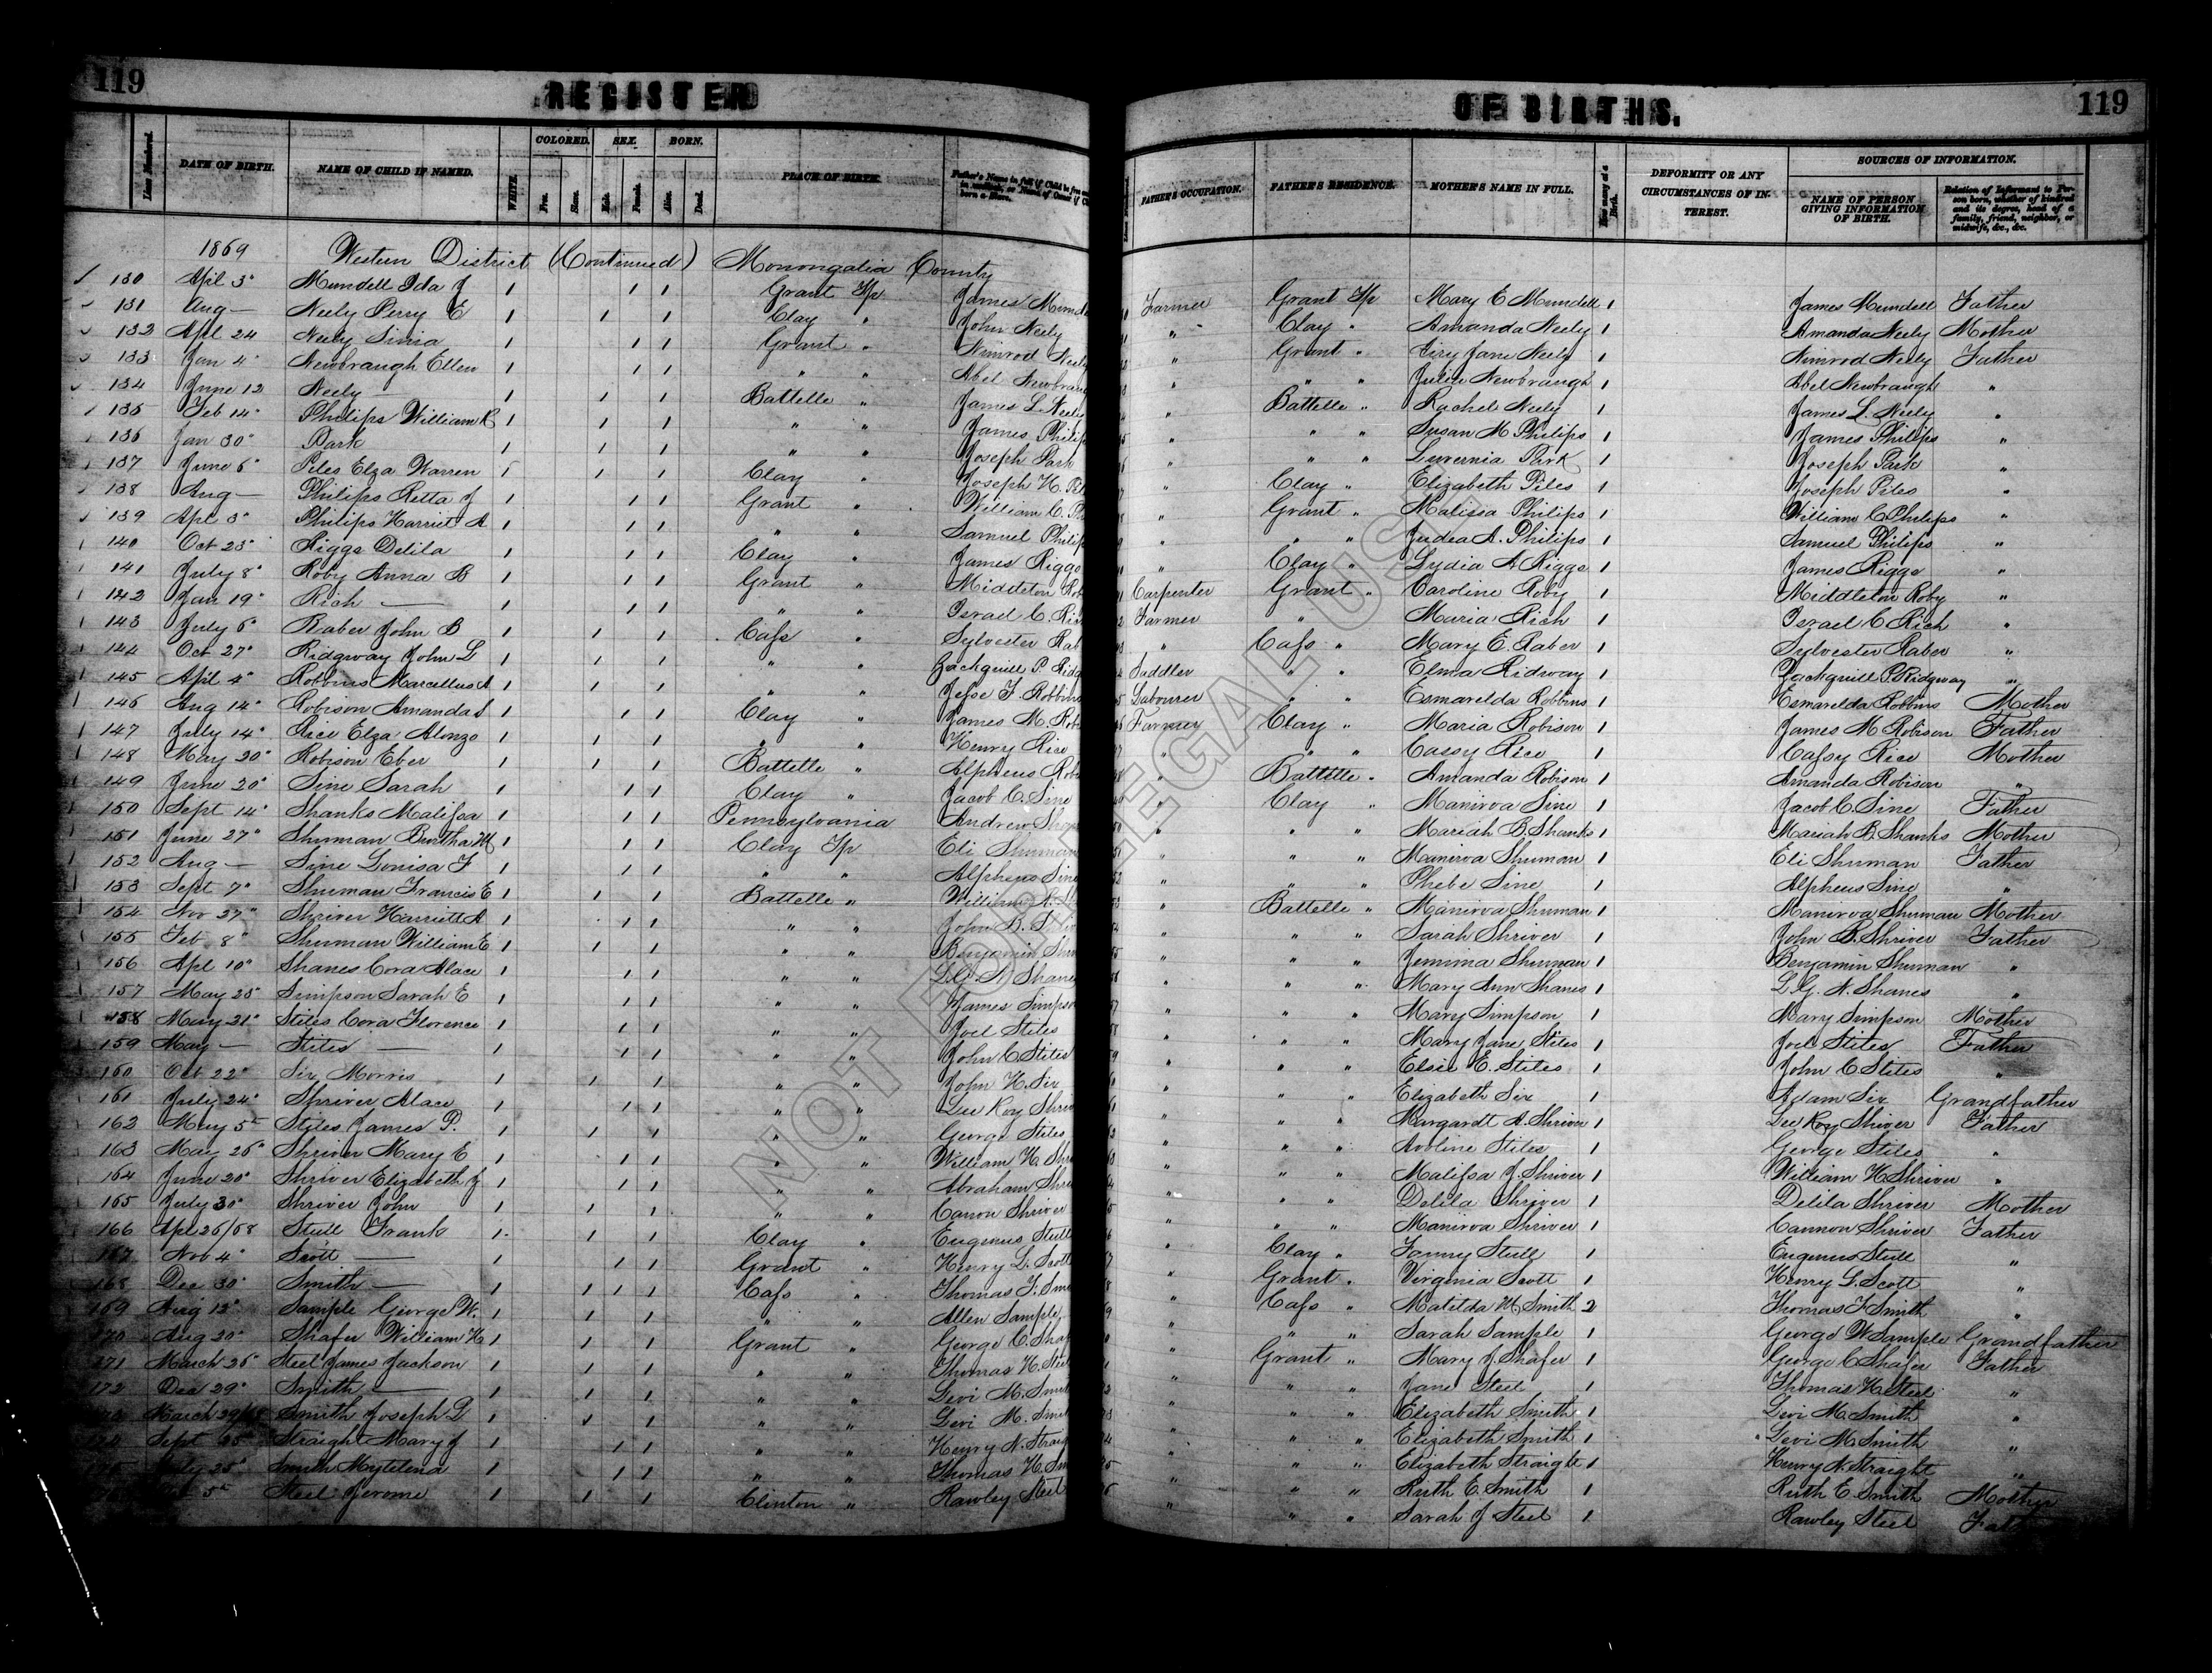 119
REGISTER
OF BIRTHS.
119
Lines Numbered. DATE OF BIRTH. NAME OF CHILD IF NAMED. WHITE. COLORED. Free. Slave. SEX. Male. Female. BORN. Alive. Dead. PLACE OF BIRTH. FATHER'S OCCUPATION. FATHER'S RESIDENCE. MOTHER'S NAME IN FULL. How many at a Birth. DEFORMITY OR ANY CIRCUMSTANCES OF INTEREST. SOURCES OF INFORMATION. NAME OF PERSON GIVING INFORMATION OF BIRTH. Relation of Informant to Person born, whether of kindred and its degree, head of a family, friend, neighbor, or midwife, &c., &c.
1869 Western District (Continued) Monongalia County
130 Apl 3" Mundell Ida J 1 1 1 Grant Tp James Farmer Grant Tp Mary E Mundell 1 James Mundell Father
131 Aug — Neely Perry E 1 1 1 Clay " John Neely " Clay " Amanda Neely 1 Amanda Neely Mother
132 Apl 24 Neely Sinia 1 1 1 Grant " Nimrod Neely " Grant " Jane Neely 1 Nimrod Neely Father
133 Jan 4" Newbraugh Ellen 1 1 1 " " Abel " " " Julia Newbraugh 1 Abel Newbraugh "
134 June 12 Neely — 1 1 1 Battelle " James L. Neely " Battelle " Rachel Neely 1 James L. Neely "
135 Feb 14" Philips William R 1 1 1 " " James " " " Susan M Philips 1 James Philips "
136 Jan 30" Park 1 1 1 " " Joseph Park " " " Luvernia Park 1 Joseph Park "
137 June 6" Piles Elza Warren 1 1 1 Clay " Joseph H. " Clay " Elizabeth Piles 1 Joseph Piles "
138 Aug — Philips Retta J 1 1 1 Grant " William C. " Grant " Malissa Philips 1 William C Philips "
139 Apl 3" Philips Harriet A 1 1 1 " " Samuel " " " Judea A. Philips 1 Samuel Philips "
140 Oct 23" Riggs Delila 1 1 1 Clay " James Riggs " Clay " Lydia A Riggs 1 James Riggs "
141 July 8" Roby Anna B 1 1 1 Grant " Middleton Carpenter Grant " Caroline Roby 1 Middleton Roby "
142 Jan 19" Rich — 1 1 1 " " Israel C. Farmer " Maria Rich 1 Israel C Rich "
143 July 6" Raber John B 1 1 1 Cass " Sylvester " Cass " Mary E. Raber 1 Sylvester Raber "
144 Oct 27" Ridgway John L 1 1 1 " " Zackquill P. Saddler " " Elma Ridway 1 Zackquill P. Ridgway "
145 Apl 4" Robbins Marcellus A 1 1 1 " " Jesse F. Robbins Labourer " " Esmarelda Robbins 1 Esmarelda Robbins Mother
146 Aug 14" Robison Amanda S 1 1 1 Clay " James M. Farmer Clay " Maria Robison 1 James M Robison Father
147 July 14" Rice Elza Alonzo 1 1 1 " " Henry Rice " " " Cassy Rice 1 Cassy Rice Mother
148 May 20" Robison Eber 1 1 1 Battelle " Alpheus " Battelle " Amanda Robison 1 Amanda Robison "
149 June 20" Sine Sarah 1 1 1 Clay " Jacob C. Sine " Clay " Manirva Sine 1 Jacob C. Sine Father
150 Sept 14" Shanks Malissa 1 1 1 Pennsylvania Andrew " " " Mariah B. Shanks 1 Mariah B. Shanks Mother
151 June 27" Shuman Bertha M 1 1 1 Clay Tp Eli Shuman " " " Manirva Shuman 1 Eli Shuman Father
152 Aug — Sine Louisa F 1 1 1 " " Alpheus Sine " " " Phebe Sine 1 Alpheus Sine "
153 Sept 7" Shuman Francis E 1 1 1 Battelle " William " Battelle " Manirva Shuman 1 Manirva Shuman Mother
154 Nov 27" Shriver Harriett A 1 1 1 " " John B. " " " Sarah Shriver 1 John B. Shriver Father
155 Feb 8" Shuman William E 1 1 1 " " Benjamin " " " Jemima Shuman 1 Benjamin Shuman "
156 Apl 10" Shanes Cora Alace 1 1 1 " " L.G. N Shanes " " " Mary Ann Shanes 1 L.G. N. Shanes "
157 May 25" Simpson Sarah E 1 1 1 " " James Simpson " " " Mary Simpson 1 Mary Simpson Mother
158 May 21" Stiles Cora Florence 1 1 1 " " Joel Stiles " " " Mary Jane Stiles 1 Joel Stiles Father
159 May — Stiles — 1 1 1 " " John C Stiles " " " Elsie E. Stiles 1 John C Stiles "
160 Oct 22" Six Morris 1 1 1 " " John H. Six " " " Elizabeth Six 1 Adam Six Grandfather
161 July 24" Shriver Alace 1 1 1 " " Lee Roy " " " Margardt A. Shriver 1 Lee Roy Shriver Father
162 May 5" Stiles James P. 1 1 1 " " George Stiles " " " Avoline Stiles 1 George Stiles "
163 May 26" Shriver Mary E 1 1 1 " " William H. " " " Malissa J Shriver 1 William H Shriver "
164 June 20" Shriver Elizabeth J 1 1 1 " " Abraham " " " Delila Shriver 1 Delila Shriver Mother
165 July 30" Shriver John 1 1 1 " " Canon Shriver " " " Manirva Shriver 1 Cannon Shriver Father
166 Apl 26/68 Stull Frank 1 1 1 Clay " Eugenus Stull " Clay " Fanny Stull 1 Eugenus Stull "
167 Nov 4" Scott — 1 1 1 Grant " Henry L. Scott " Grant " Virginia Scott 1 Henry L. Scott "
168 Dec 30" Smith — 1 1 1 1 Cass " Thomas F. " Cass " Matilda M. Smith 2 Thomas F Smith "
169 Aug 13" Sample George W. 1 1 1 " " Allen Sample " " " Sarah Sample 1 George W Sample Grandfather
170 Aug 20" Shafer William H 1 1 1 Grant " George C. " Grant " Mary J. Shafer 1 George C Shafer Father
171 March 26" Steel James Jackson 1 1 1 " " Thomas H. Steel " " " Jane Steel 1 Thomas H. Steel "
172 Dec 29" Smith — 1 1 1 " " Levi M. " " " Elizabeth Smith 1 Levi M. Smith "
March Smith Joseph L 1 1 1 " " Levi M. " " " Elizabeth Smith 1 Levi M. Smith "
Sept Straight Mary J 1 1 1 " " Henry N. " " " Elizabeth Straight 1 Henry N. Straight "
July 25" Smith Mytelena 1 1 1 " " Thomas H. " " " Ruth E. Smith 1 Ruth E. Smith Mother
5" Steel Jerome 1 1 1 Clinton " Rawley Steel " " " Sarah J Steel 1 Rawley Steel
NOT FOR LEGAL USE